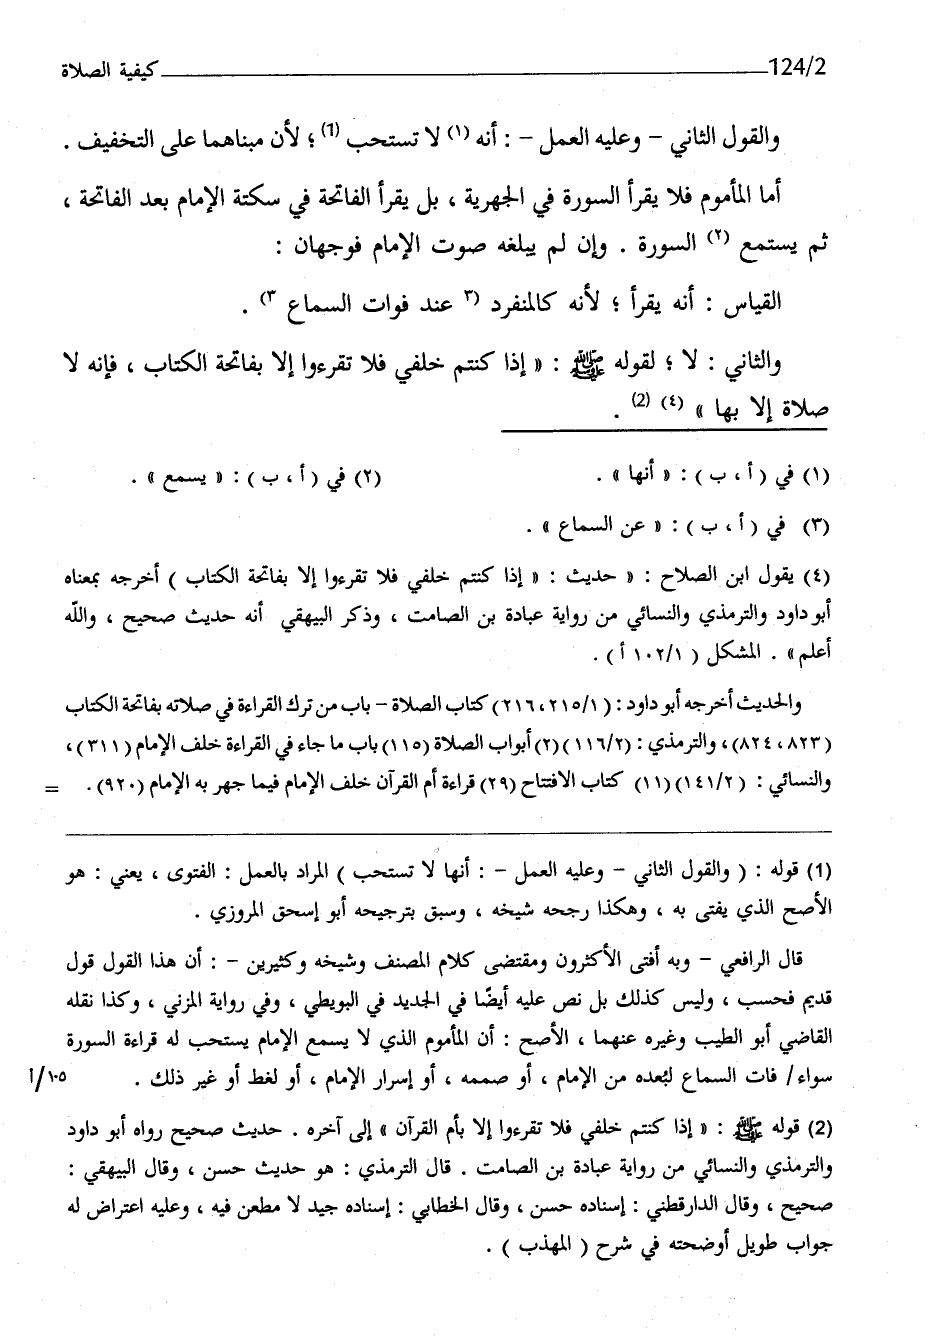 124/2 كيفية الصلاة
والقول الثاني – وعليه العمل – : أنه (١) لا تستحب (1) ؛ لأن مبناهما على التخفيف .
أما المأموم فلا يقرأ السورة في الجهرية ، بل يقرأ الفاتحة في سكتة الإمام بعد الفاتحة ،
ثم يستمع (٢) السورة . وإن لم يبلغه صوت الإمام فوجهان :
القياس : أنه يقرأ ؛ لأنه كالمنفرد (٣ عند فوات السماع ٣) .
والثاني : لا ؛ لقوله ﷺ : « إذا كنتم خلفي فلا تقرءوا إلا بفاتحة الكتاب ، فإنه لا
صلاة إلا بها » (٤) (2) .
(١) في ( أ ، ب ) : « أنها » . (٢) في ( أ ، ب ) : « يسمع » .
(٣) في ( أ ، ب ) : « عن السماع » .
(٤) يقول ابن الصلاح : « حديث : « إذا كنتم خلفي فلا تقرءوا إلا بفاتحة الكتاب ) أخرجه بمعناه
أبو داود والترمذي والنسائي من رواية عبادة بن الصامت ، وذكر البيهقي أنه حديث صحيح ، والله
أعلم » . المشكل ( ١٠٢/١ أ ) .
والحديث أخرجه أبو داود : ( ٢١٥/١، ٢١٦) كتاب الصلاة – باب من ترك القراءة في صلاته بفاتحة الكتاب
(٨٢٣، ٨٢٤)، والترمذي : (١١٦/٢)(٢) أبواب الصلاة (١١٥) باب ما جاء في القراءة خلف الإمام (٣١١)،
والنسائي : (١٤١/٢)(١١) كتاب الافتتاح (٢٩) قراءة أم القرآن خلف الإمام فيما جهر به الإمام (٩٢٠). =
(1) قوله : ( والقول الثاني – وعليه العمل – : أنها لا تستحب ) المراد بالعمل : الفتوى ، يعني : هو
الأصح الذي يفتى به ، وهكذا رجحه شيخه ، وسبق بترجيحه أبو إسحق المروزي .
قال الرافعي – وبه أفتى الأكثرون ومقتضى كلام المصنف وشيخه وكثيرين – : أن هذا القول قول
قديم فحسب ، وليس كذلك بل نص عليه أيضًا في الجديد في البويطي ، وفي رواية المزني ، وكذا نقله
القاضي أبو الطيب وغيره عنهما ، الأصح : أن المأموم الذي لا يسمع الإمام يستحب له قراءة السورة
سواء/ فات السماع لبُعده من الإمام ، أو صممه ، أو إسرار الإمام ، أو لغط أو غير ذلك . ١٠٥/أ
(2) قوله ﷺ : « إذا كنتم خلفي فلا تقرءوا إلا بأم القرآن » إلى آخره . حديث صحيح رواه أبو داود
والترمذي والنسائي من رواية عبادة بن الصامت . قال الترمذي : هو حديث حسن ، وقال البيهقي :
صحيح ، وقال الدارقطني : إسناده حسن ، وقال الخطابي : إسناده جيد لا مطعن فيه ، وعليه اعتراض له
جواب طويل أوضحته في شرح ( المهذب ) .